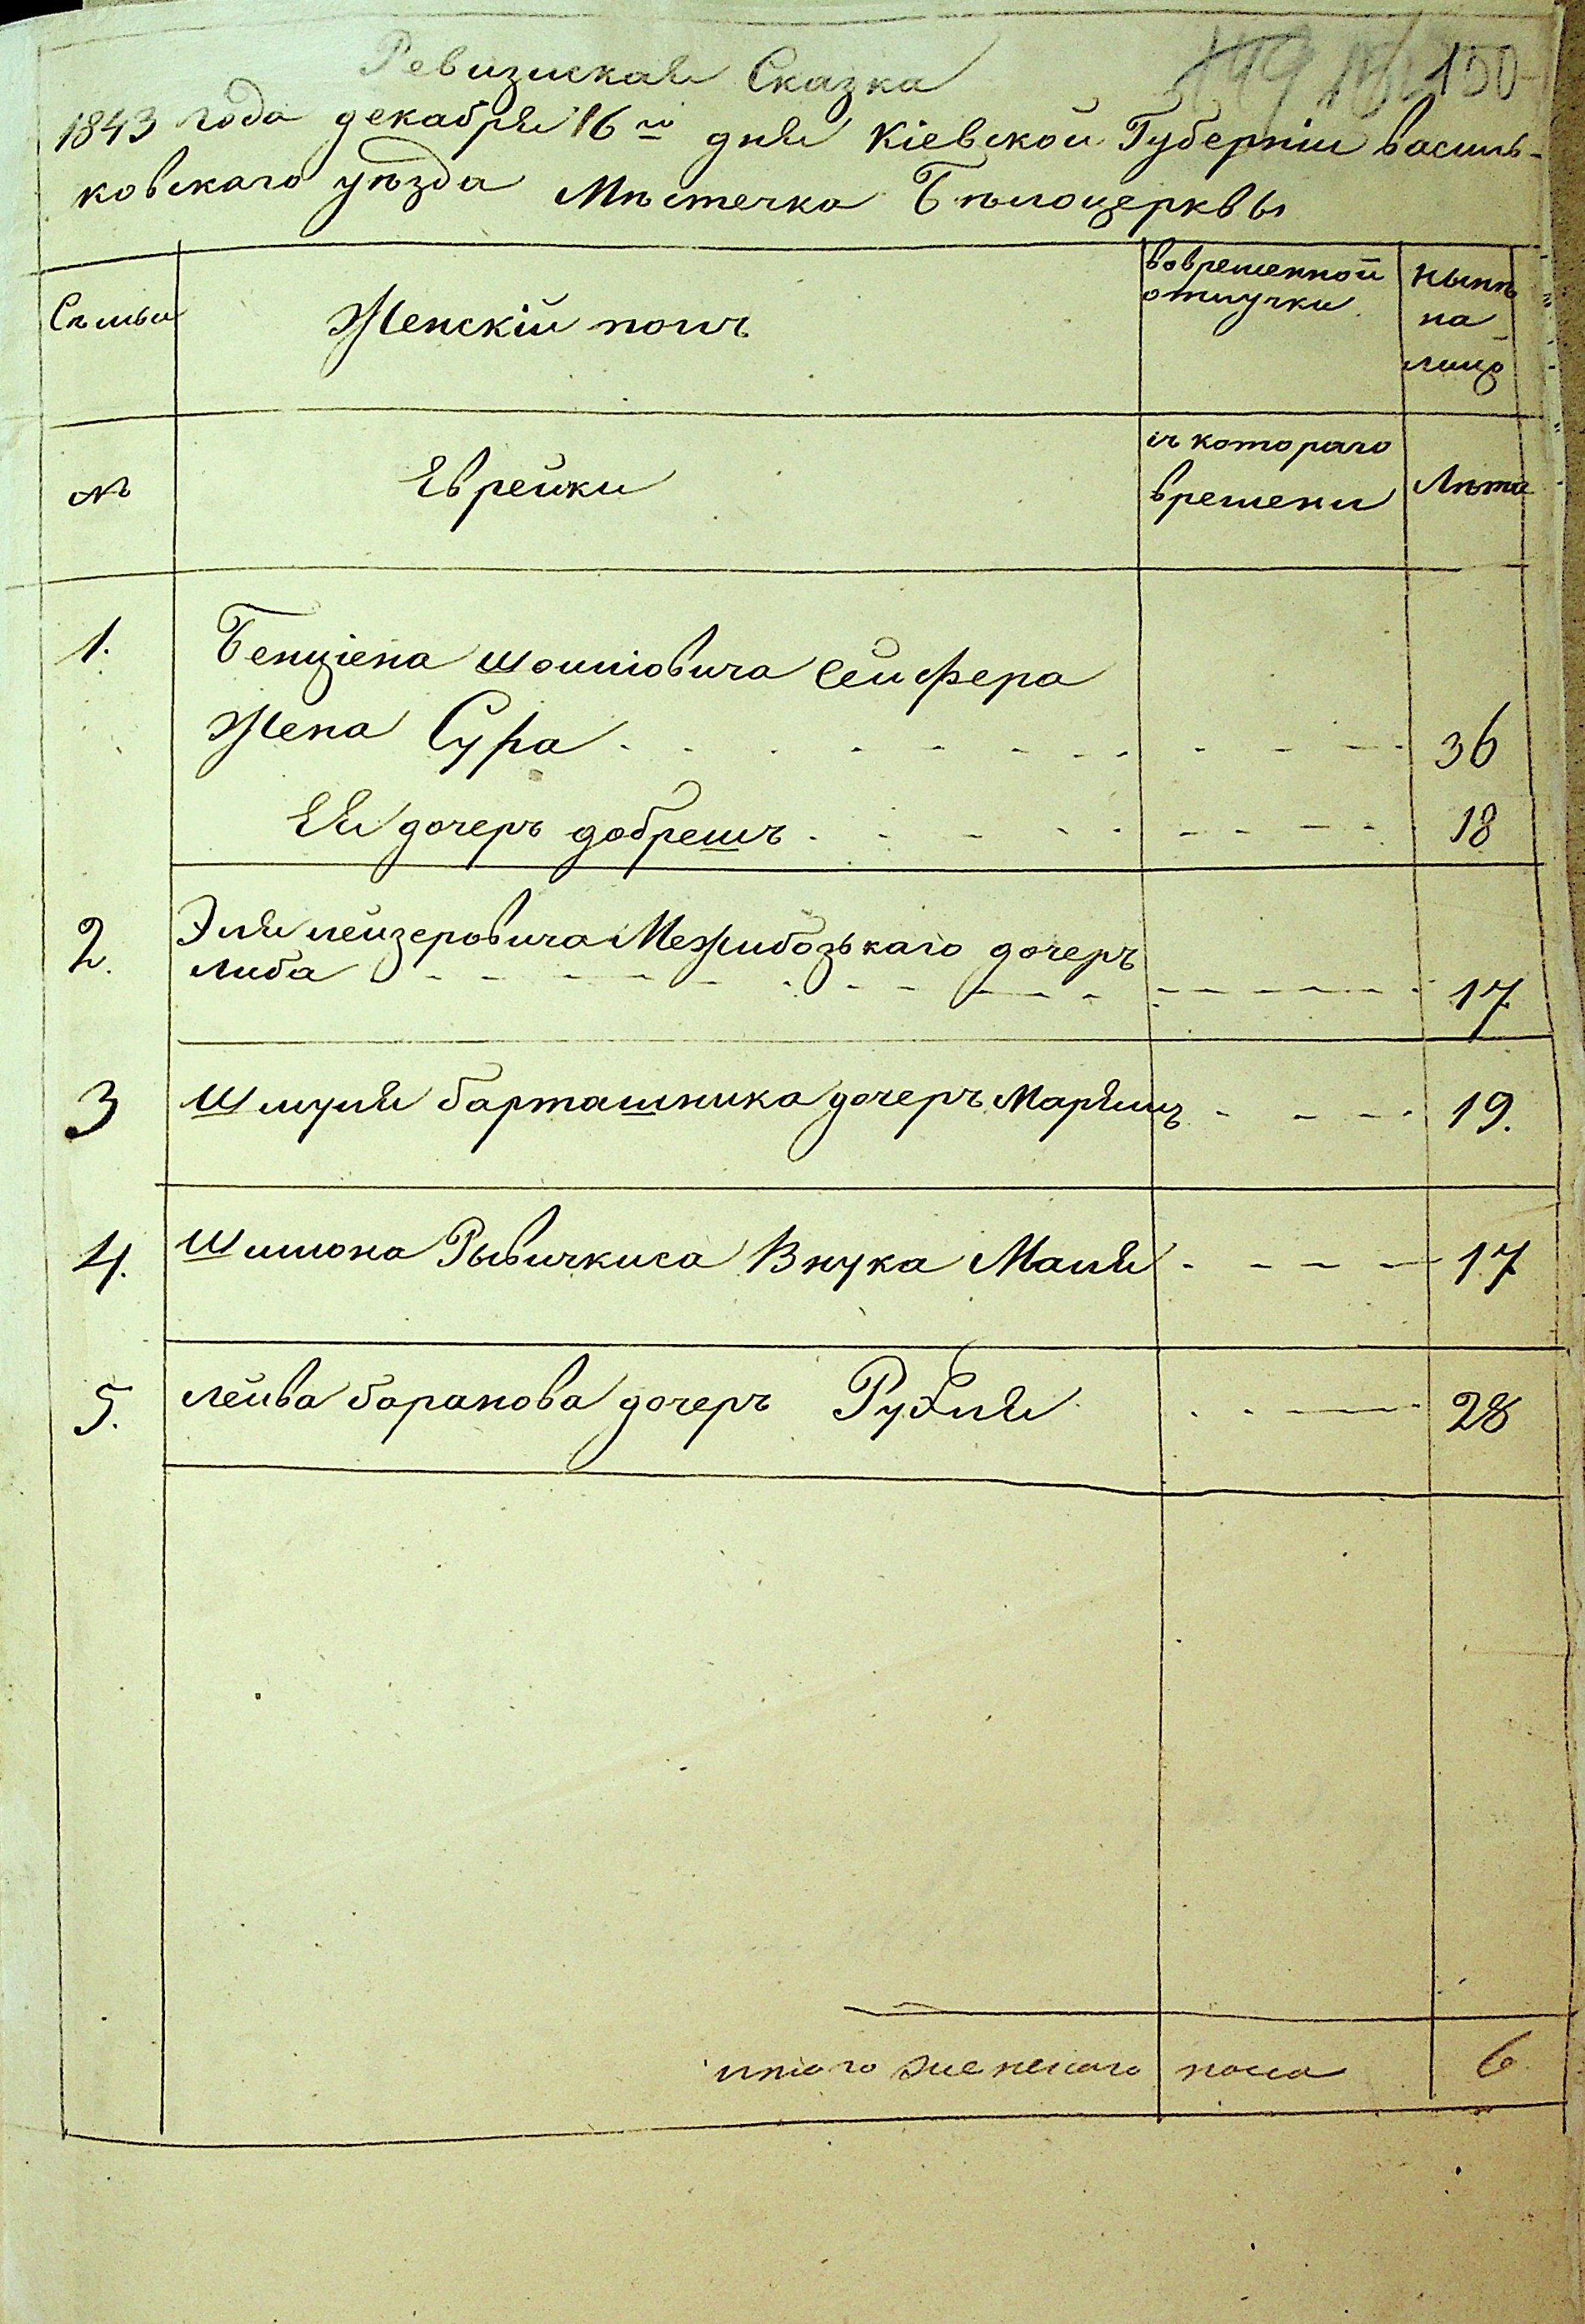 Ревизиская Сказка
150
1843 года декабря 16го дня Кіевской Губерніи василь-
ковскаго уѣзда Мѣстечка Бѣлоцерквы
Сѣмьи
Женскій полъ
вовременной
отлучки
нынѣ
на-
лицо
№
Еврейки
съ котораго
времени
Лѣта
1. Бенціена шоиловича Сейфера
Жена Сура 36
Ея дочеръ добрешъ 18
2. Эля лейзеровича Межибозькаго дочеръ
либа 17
3 Шмуля барташника дочеръ Маряшъ 19.
4. Шимона Рывичкиса Внука Маля 17
5. лейва баранова дочеръ Рухля 28
итого женскаго пола 6